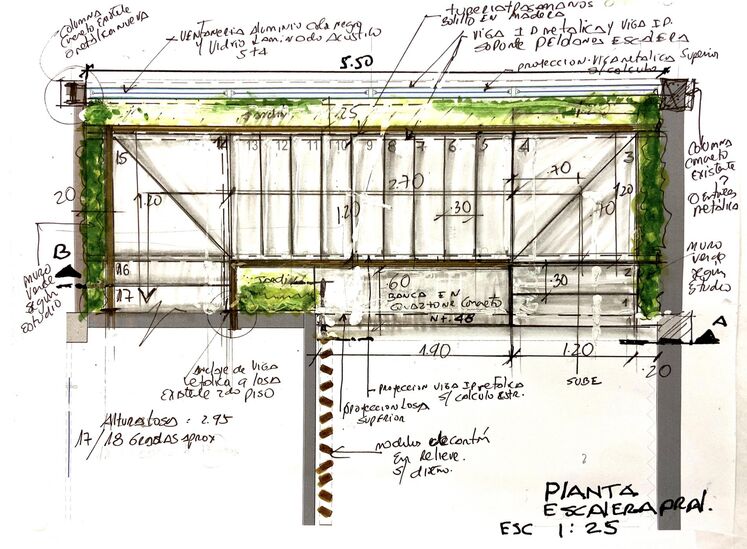 COLUMNA
CONCRETO EXISTENTE
O METALICA NUEVA
VENTANERIA ALUMINIO COLOR NEGRO
Y VIDRIO LAMINADO ACUSTICO
5+4
TUBERIA PASAMANOS
BOLILLO EN MADERA
VIGA I P METALICA Y VIGA I P.
SOPORTE PELDAÑOS ESCALERA
PROYECCION VIGA METALICA SUPERIOR
S/ CALCULO
5.50
JARDIN
.25
15
14
13
12
11
10
9
8
7
6
5
4
3
COLUMNA
CONCRETO
EXISTENTE
?
METALICA
20
1.20
2.70
1.20
.30
.70
.70
1.20
B
MURO
VERDE
SEGUN
ESTUDIO
16
17
JARDIN
.60
BANCA EN
CUARZTONE CONCRETO
N+.48
.30
2
1
MURO
VERDE
SEGUN
ESTUDIO
A
1.90
1.20
.20
SUBE
ANCLAJE DE VIGA
METALICA A LOSA
EXISTENTE 2DO PISO
PROYECCION VIGA I P METALICA
S/ CALCULO ESTR.
PROYECCION LOSA
SUPERIOR
ALTURA LOSA : 2.95
17/18 GRADAS APROX
MODULOS DE CONTROL
EN RELIEVE.
S/ DISEÑO.
PLANTA
ESCALERA PRAL.
ESC 1:25